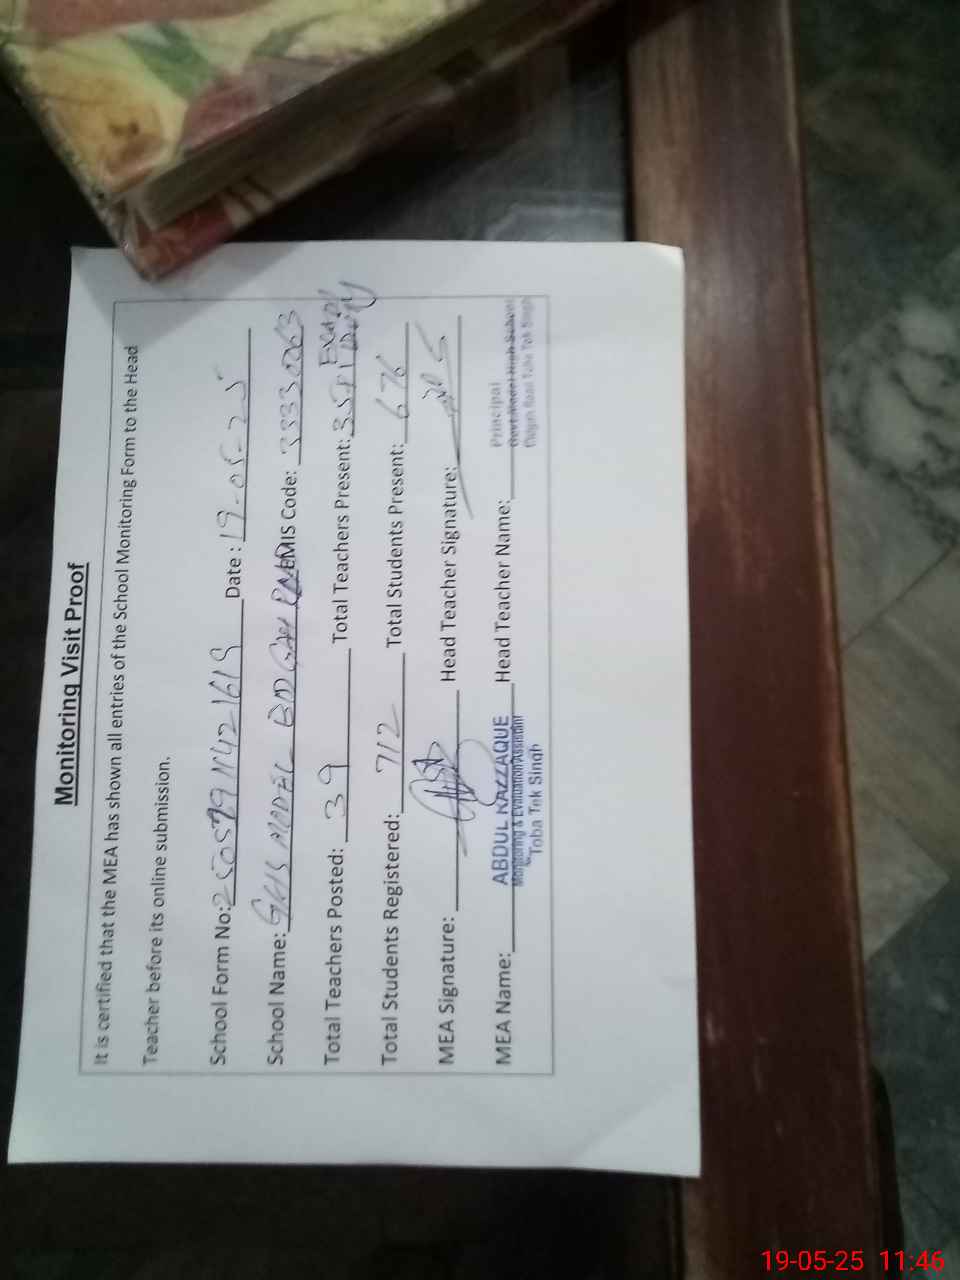 Monitoring Visit Proof
It is certified that the MEA has shown all entries of the School Monitoring Form to the Head
Teacher before its online submission.
School Form No: Date: 19-05-25
School Name: GHS MODEL EMIS Code: 33330063
Total Teachers Posted: 39 Total Teachers Present: 35+1 Exam Duty
Total Students Registered: 712 Total Students Present: 676
MEA Signature: Head Teacher Signature:
MEA Name: ABDUL RAZZAQUE Head Teacher Name: Principal
Monitoring & Evaluation Assistant Govt Model High School
Toba Tek Singh Road Toba Tek Singh
19-05-25 11:46